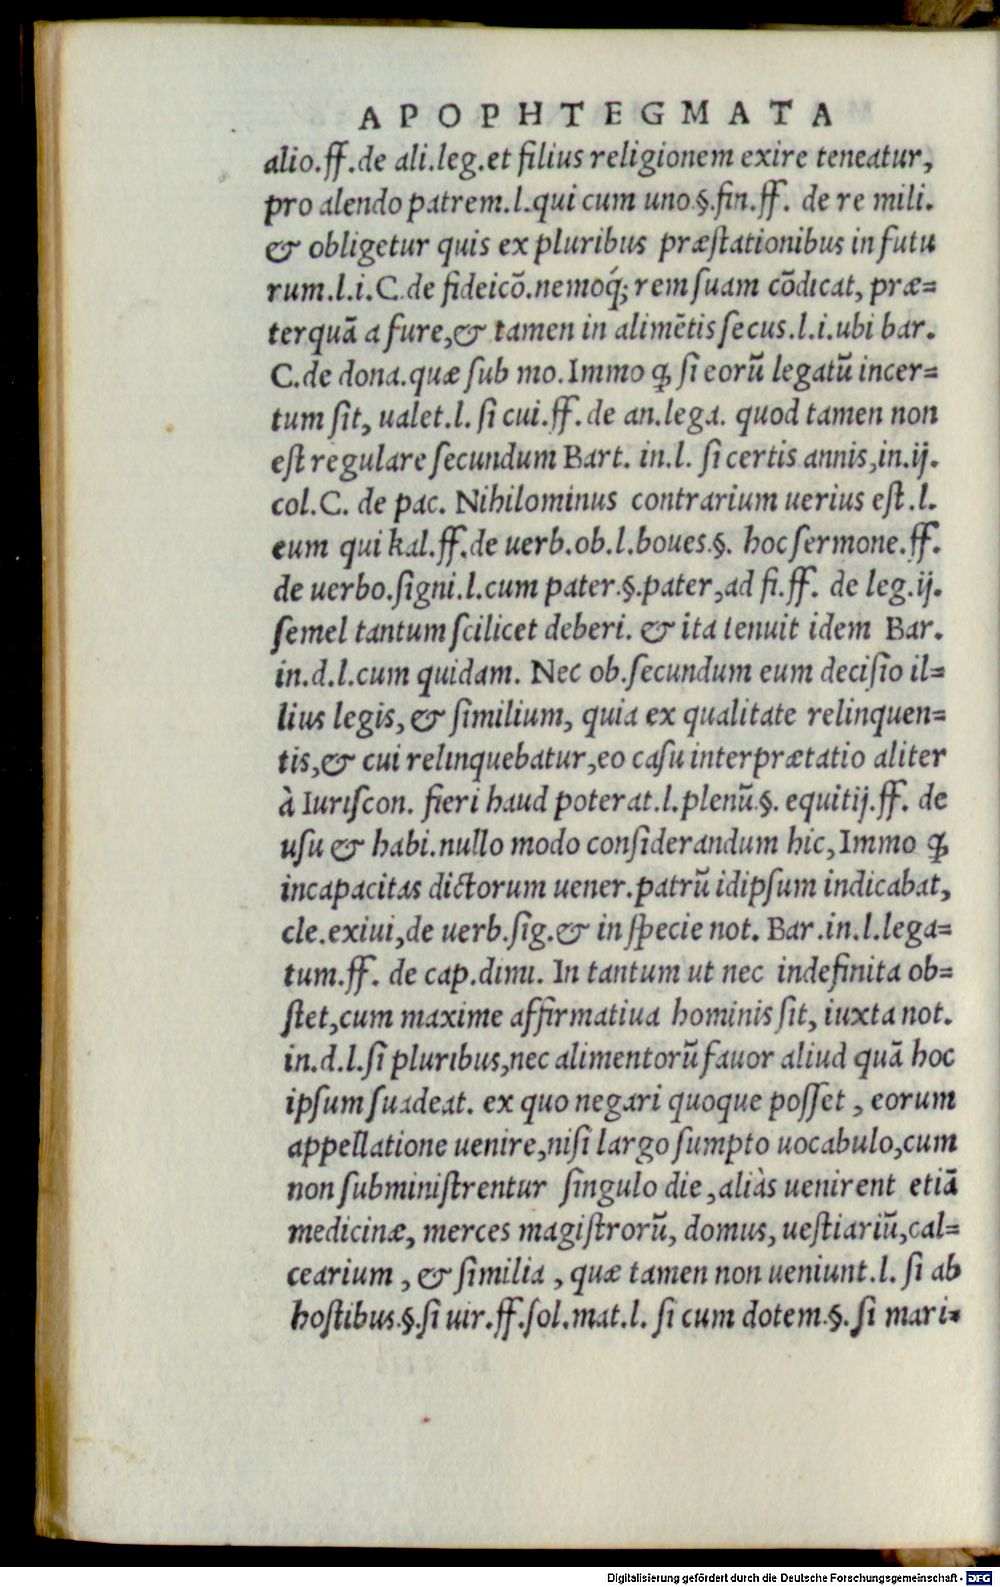 APOPHTEGMATA
alio.ff.de ali.leg.et filius religionem exire teneatur,
pro alendo patrem.l.qui cum uno.§.fin.ff. de re mili.
& obligetur quis ex pluribus præstationibus in futu
rum.l.i.C.de fideicō.nemoq́; rem suam cōdicat, præ=
terquā a fure,& tamen in alimētis secus.l.i.ubi bar.
C.de dona.quæ sub mo.Immo ꝙ si eorū legatū incer=
tum sit, ualet.l. si cui.ff.de an.lega. quod tamen non
est regulare secundum Bart. in.l. si certis annis,in.ij.
col.C. de pac. Nihilominus contrarium uerius est.l.
eum qui kal.ff.de uerb.ob.l.boues.§. hoc sermone.ff.
de uerbo.signi.l.cum pater.§.pater,ad fi.ff. de leg.ij.
semel tantum scilicet deberi. & ita tenuit idem Bar.
in.d.l.cum quidam. Nec ob.secundum eum decisio il=
lius legis, & similium, quia ex qualitate relinquen=
tis,& cui relinquebatur,eo casu interprætatio aliter
à Iuriscon. fieri haud poterat.l.plenū.§. equitij.ff. de
usu & habi.nullo modo considerandum hic, Immo ꝙ
incapacitas dictorum uener.patrū idipsum indicabat,
cle.exiui,de uerb.sig.& in specie not. Bar.in.l.lega=
tum.ff. de cap.dimi. In tantum ut nec indefinita ob=
stet,cum maxime affirmatiua hominis sit, iuxta not.
in.d.l.si pluribus,nec alimentorū fauor aliud quā hoc
ipsum suadeat. ex quo negari quoque posset , eorum
appellatione uenire,nisi largo sumpto uocabulo,cum
non subministrentur singulo die ,aliàs uenirent etiā
medicinæ, merces magistrorū, domus, uestiariū,cal=
cearium , & similia , quæ tamen non ueniunt.l. si ab
hostibus.§.si uir.ff.sol.mat.l. si cum dotem.§. si mari=
Digitalisierung gefördert durch die Deutsche Forschungsgemeinschaft - DFG